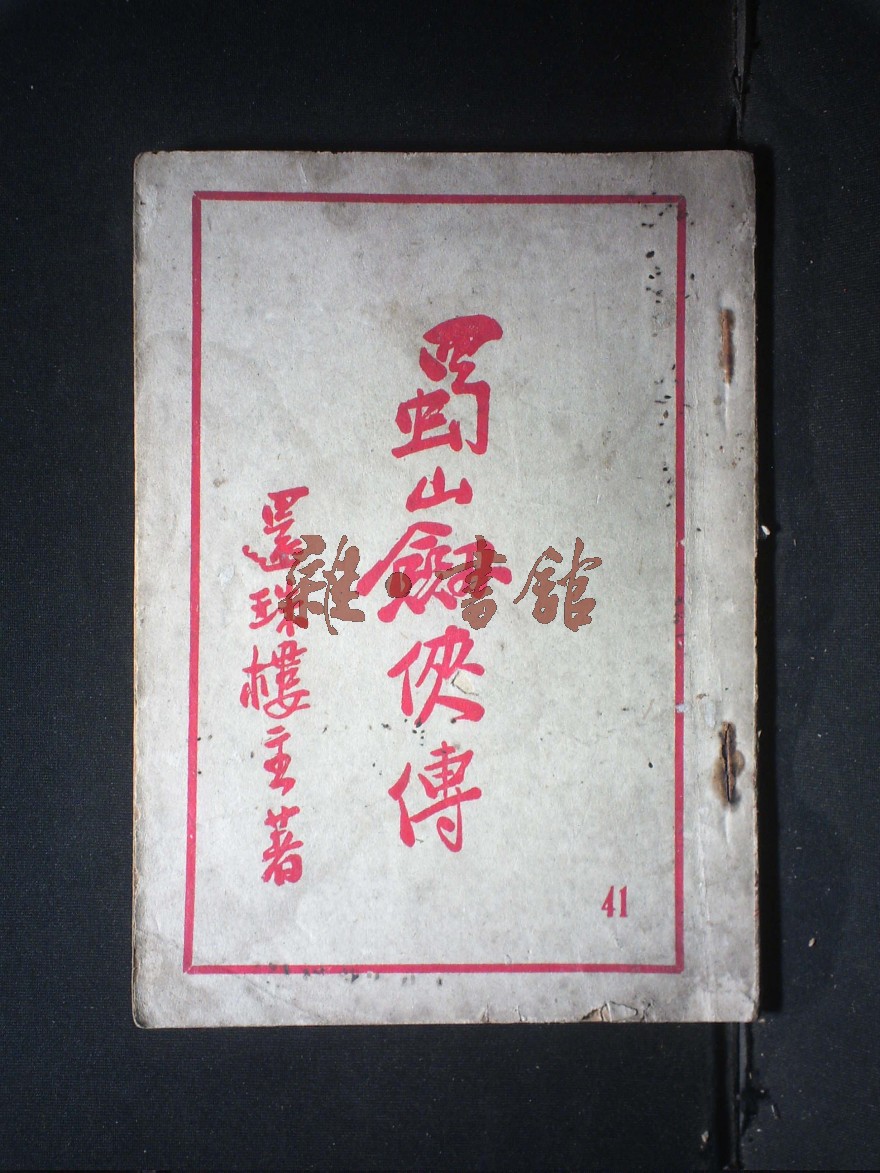 蜀山劍俠傳
還珠樓主著
41
雜·書館